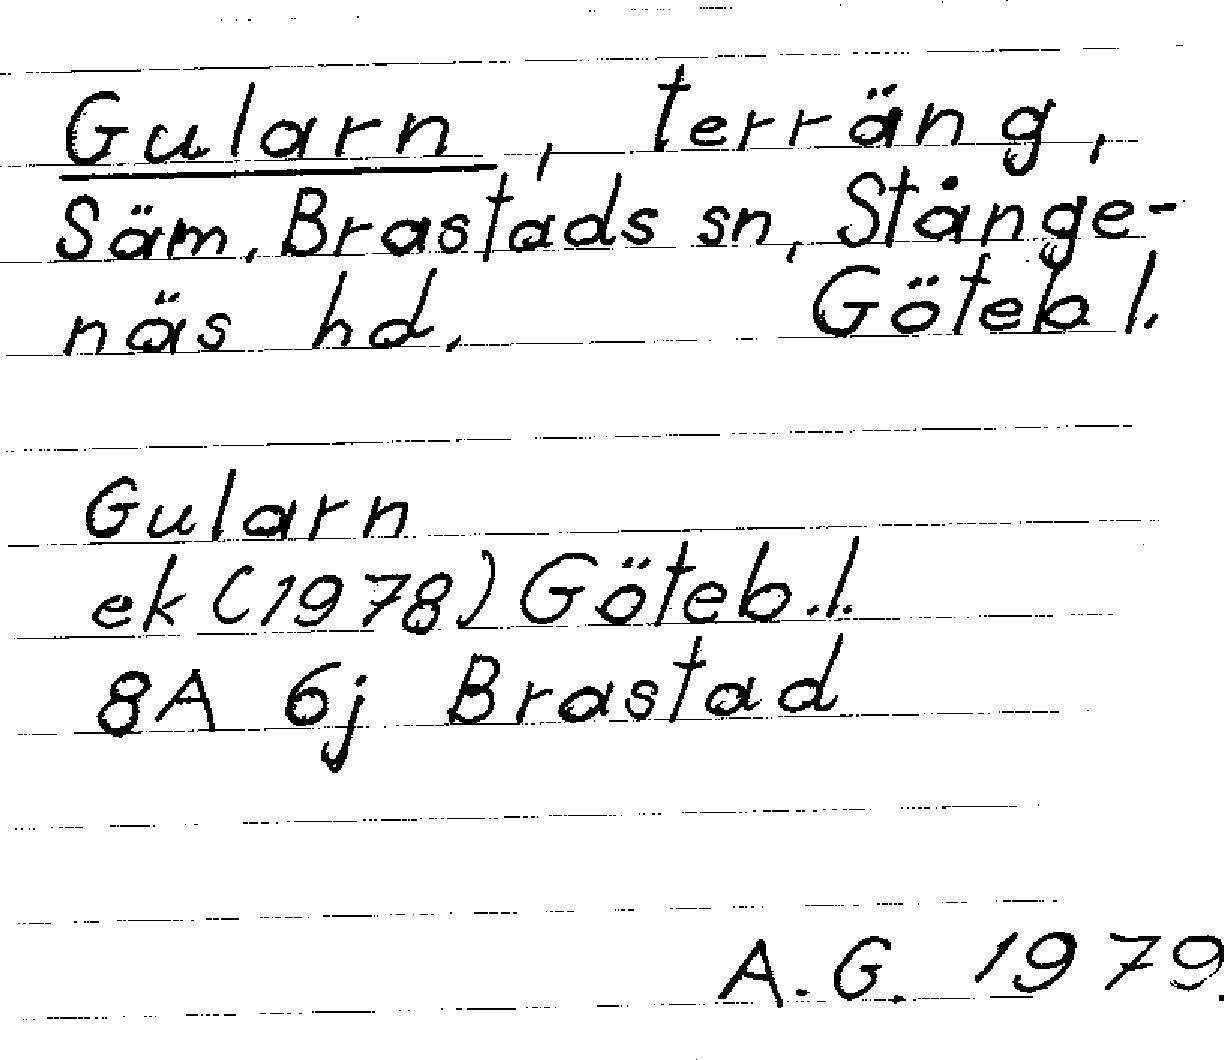 Gularn, terräng,
Säm, Brastads sn, Stånge-
näs hd. Göteb l.
Gularn
ek (1978) Göteb.l.
8A 6j Brastad
A.G. 1979.